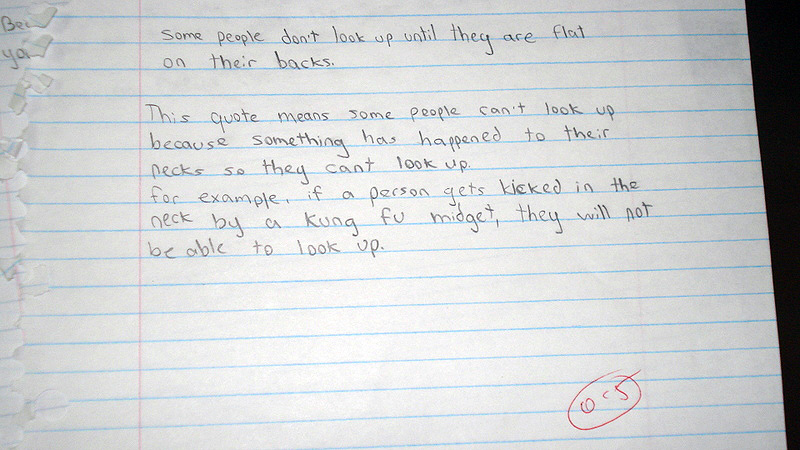 Bei
ya
Some people don't look up until they are flat
on their backs.
This quote means some people can't look up
because something has happened to their
necks so they cant look up.
for example, if a person gets kicked in the
neck by a kung fu midget, they will not
be able to look up.
0.5